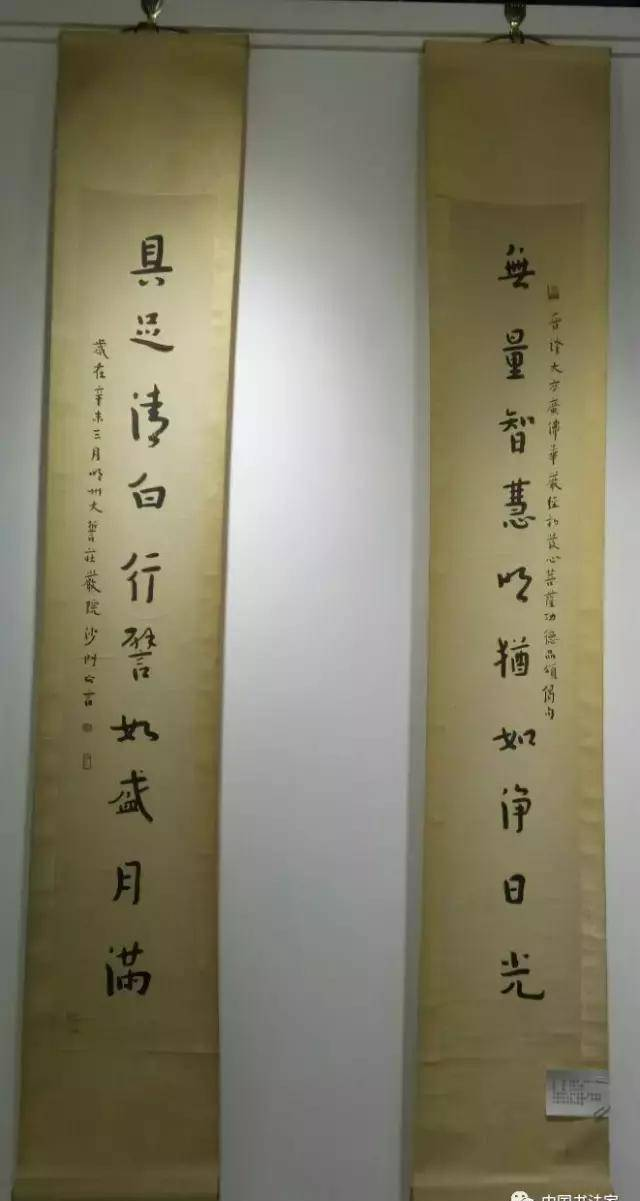 晉譯大方廣佛華嚴經初發心菩薩功德品頌偈句
無量智慧明猶如淨日光
具足清白行譬如盛月滿
歲在辛未三月明州大誓莊嚴院沙門
中国书法家